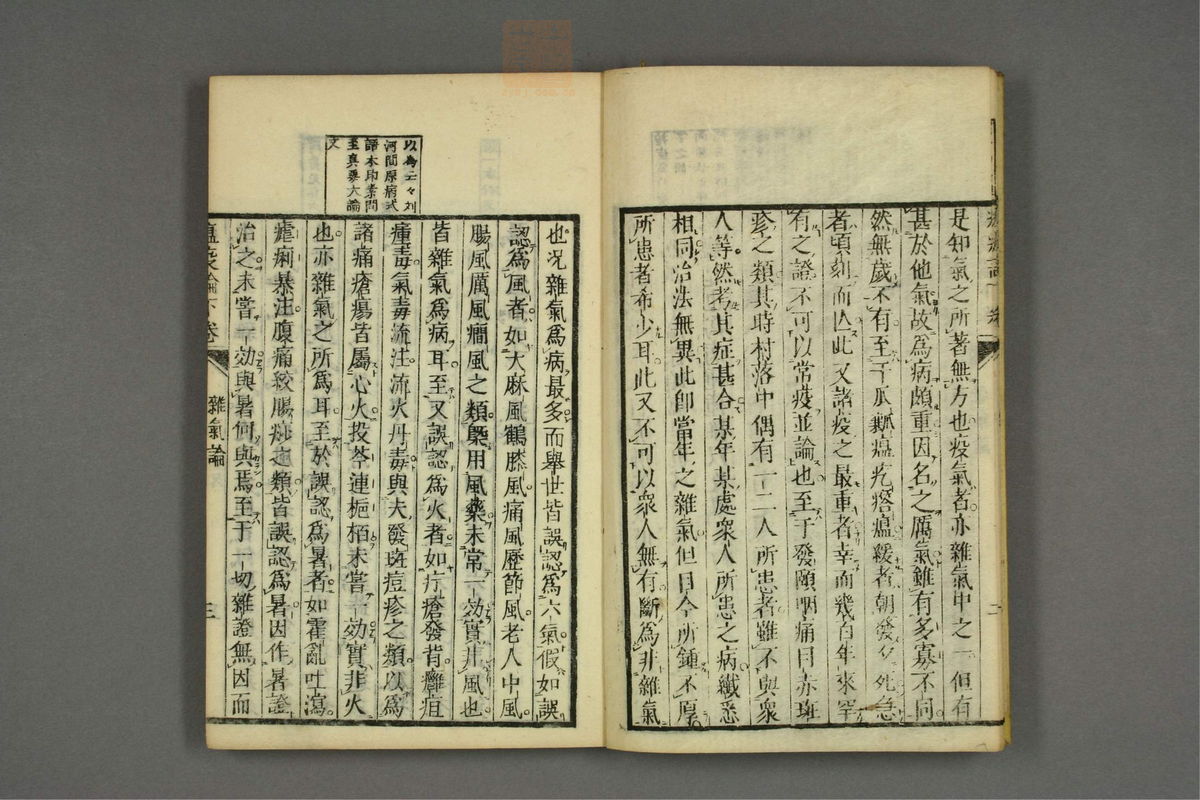 瘟疫論下卷
是知氣之所著無方也疫氣者亦雜氣中之一但有
甚於他氣故爲病頗重因名之厲氣雖有多寡不同
然無歲不有至于瓜瓤瘟疙瘩瘟緩者朝發夕死急
者頃刻而亾此又諸疫之最重者幸而幾百年來罕
有之證不可以常疫並論也至于發頤咽痛目赤斑
疹之類其時村落中偶有一二人所患者雖不與衆
人等然考其症甚合某年某處衆人所患之病纖悉
相同治法無異此卽當年之雜氣但目今所鍾不厚
所患者希少耳此又不可以衆人無有斷爲非雜氣
以爲云々刘
河間原病式
語本即素問
至真要大論
文
也况雜氣爲病最多而舉世皆誤認爲六氣假如誤
認爲風者如大麻風鶴膝風痛風歷節風老人中風
腸風厲風癇風之類槩用風藥未常一効實非風也
皆雜氣爲病耳至又誤認爲火者如疔瘡發背癰疽
瘇毒氣毒流注流火丹毒與夫發斑痘疹之類以爲
諸痛瘡瘍皆屬心火投芩連梔栢未嘗一効實非火
也亦雜氣之所爲耳至於誤認爲暑者如霍亂吐瀉
瘧痢暴注腹痛絞腸痧之類皆誤認爲暑因作暑證
治之未嘗一効與暑何與焉至于一切雜證無因而
瘟疫論下卷
雜氣論
三